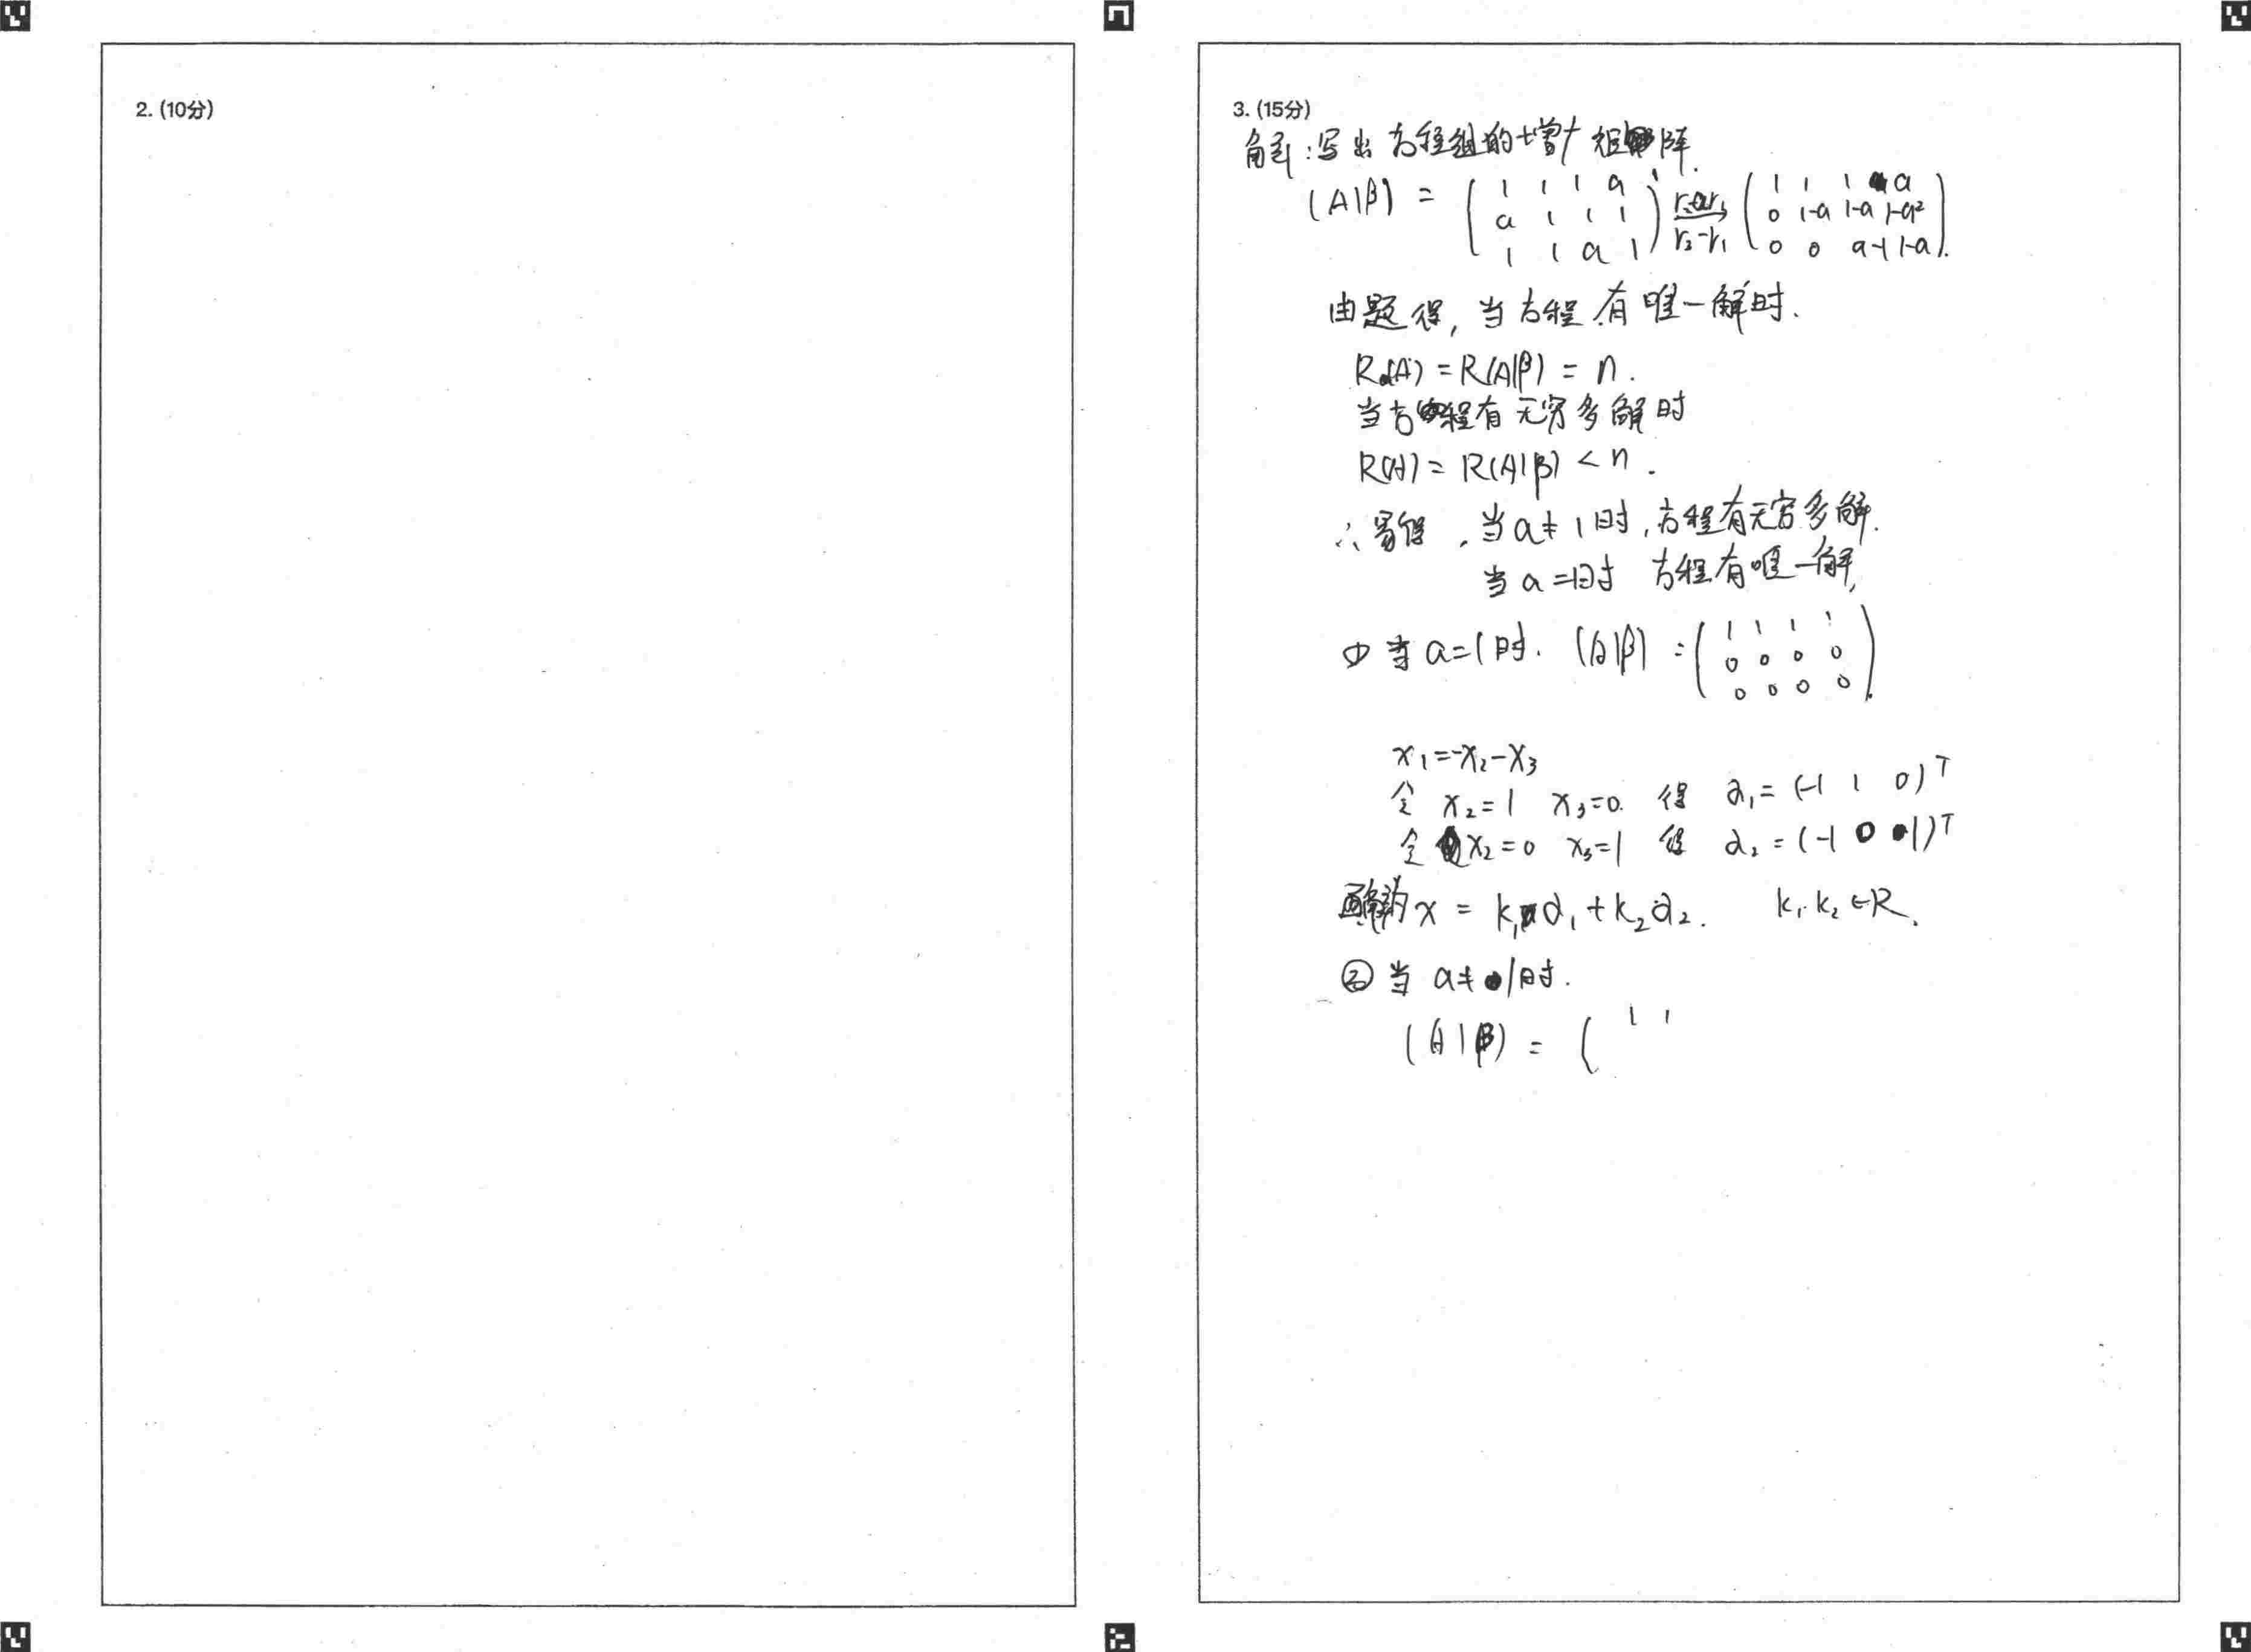 2. (10分)
3. (15分)
解:写出方程组的增广矩阵.
(A|β) = ( 1 1 1 a
a 1 1 1
1 1 a 1 ) r₂-ar₁ r₃-r₁ ( 1 1 1 a
0 1-a 1-a 1-a²
0 0 a-1 1-a ).
由题得, 当方程有唯一解时.
R(A) = R(A|β) = n.
当方程有无穷多解时
R(A) = R(A|β) < n.
∴ 得, 当a≠1时,方程有无穷多解.
当a=1时 方程有唯一解,
① 当a=1时. (A|β) = ( 1 1 1 1
0 0 0 0
0 0 0 0 ).
x₁=-x₂-x₃
令 x₂=1 x₃=0. 得 α₁= (-1 1 0)ᵀ
令 x₂=0 x₃=1 得 α₂ = (-1 0 1)ᵀ
解为 x = k₁α₁+k₂α₂. k₁.k₂∈R.
② 当 a≠1时.
(A|β) = ( 1 1